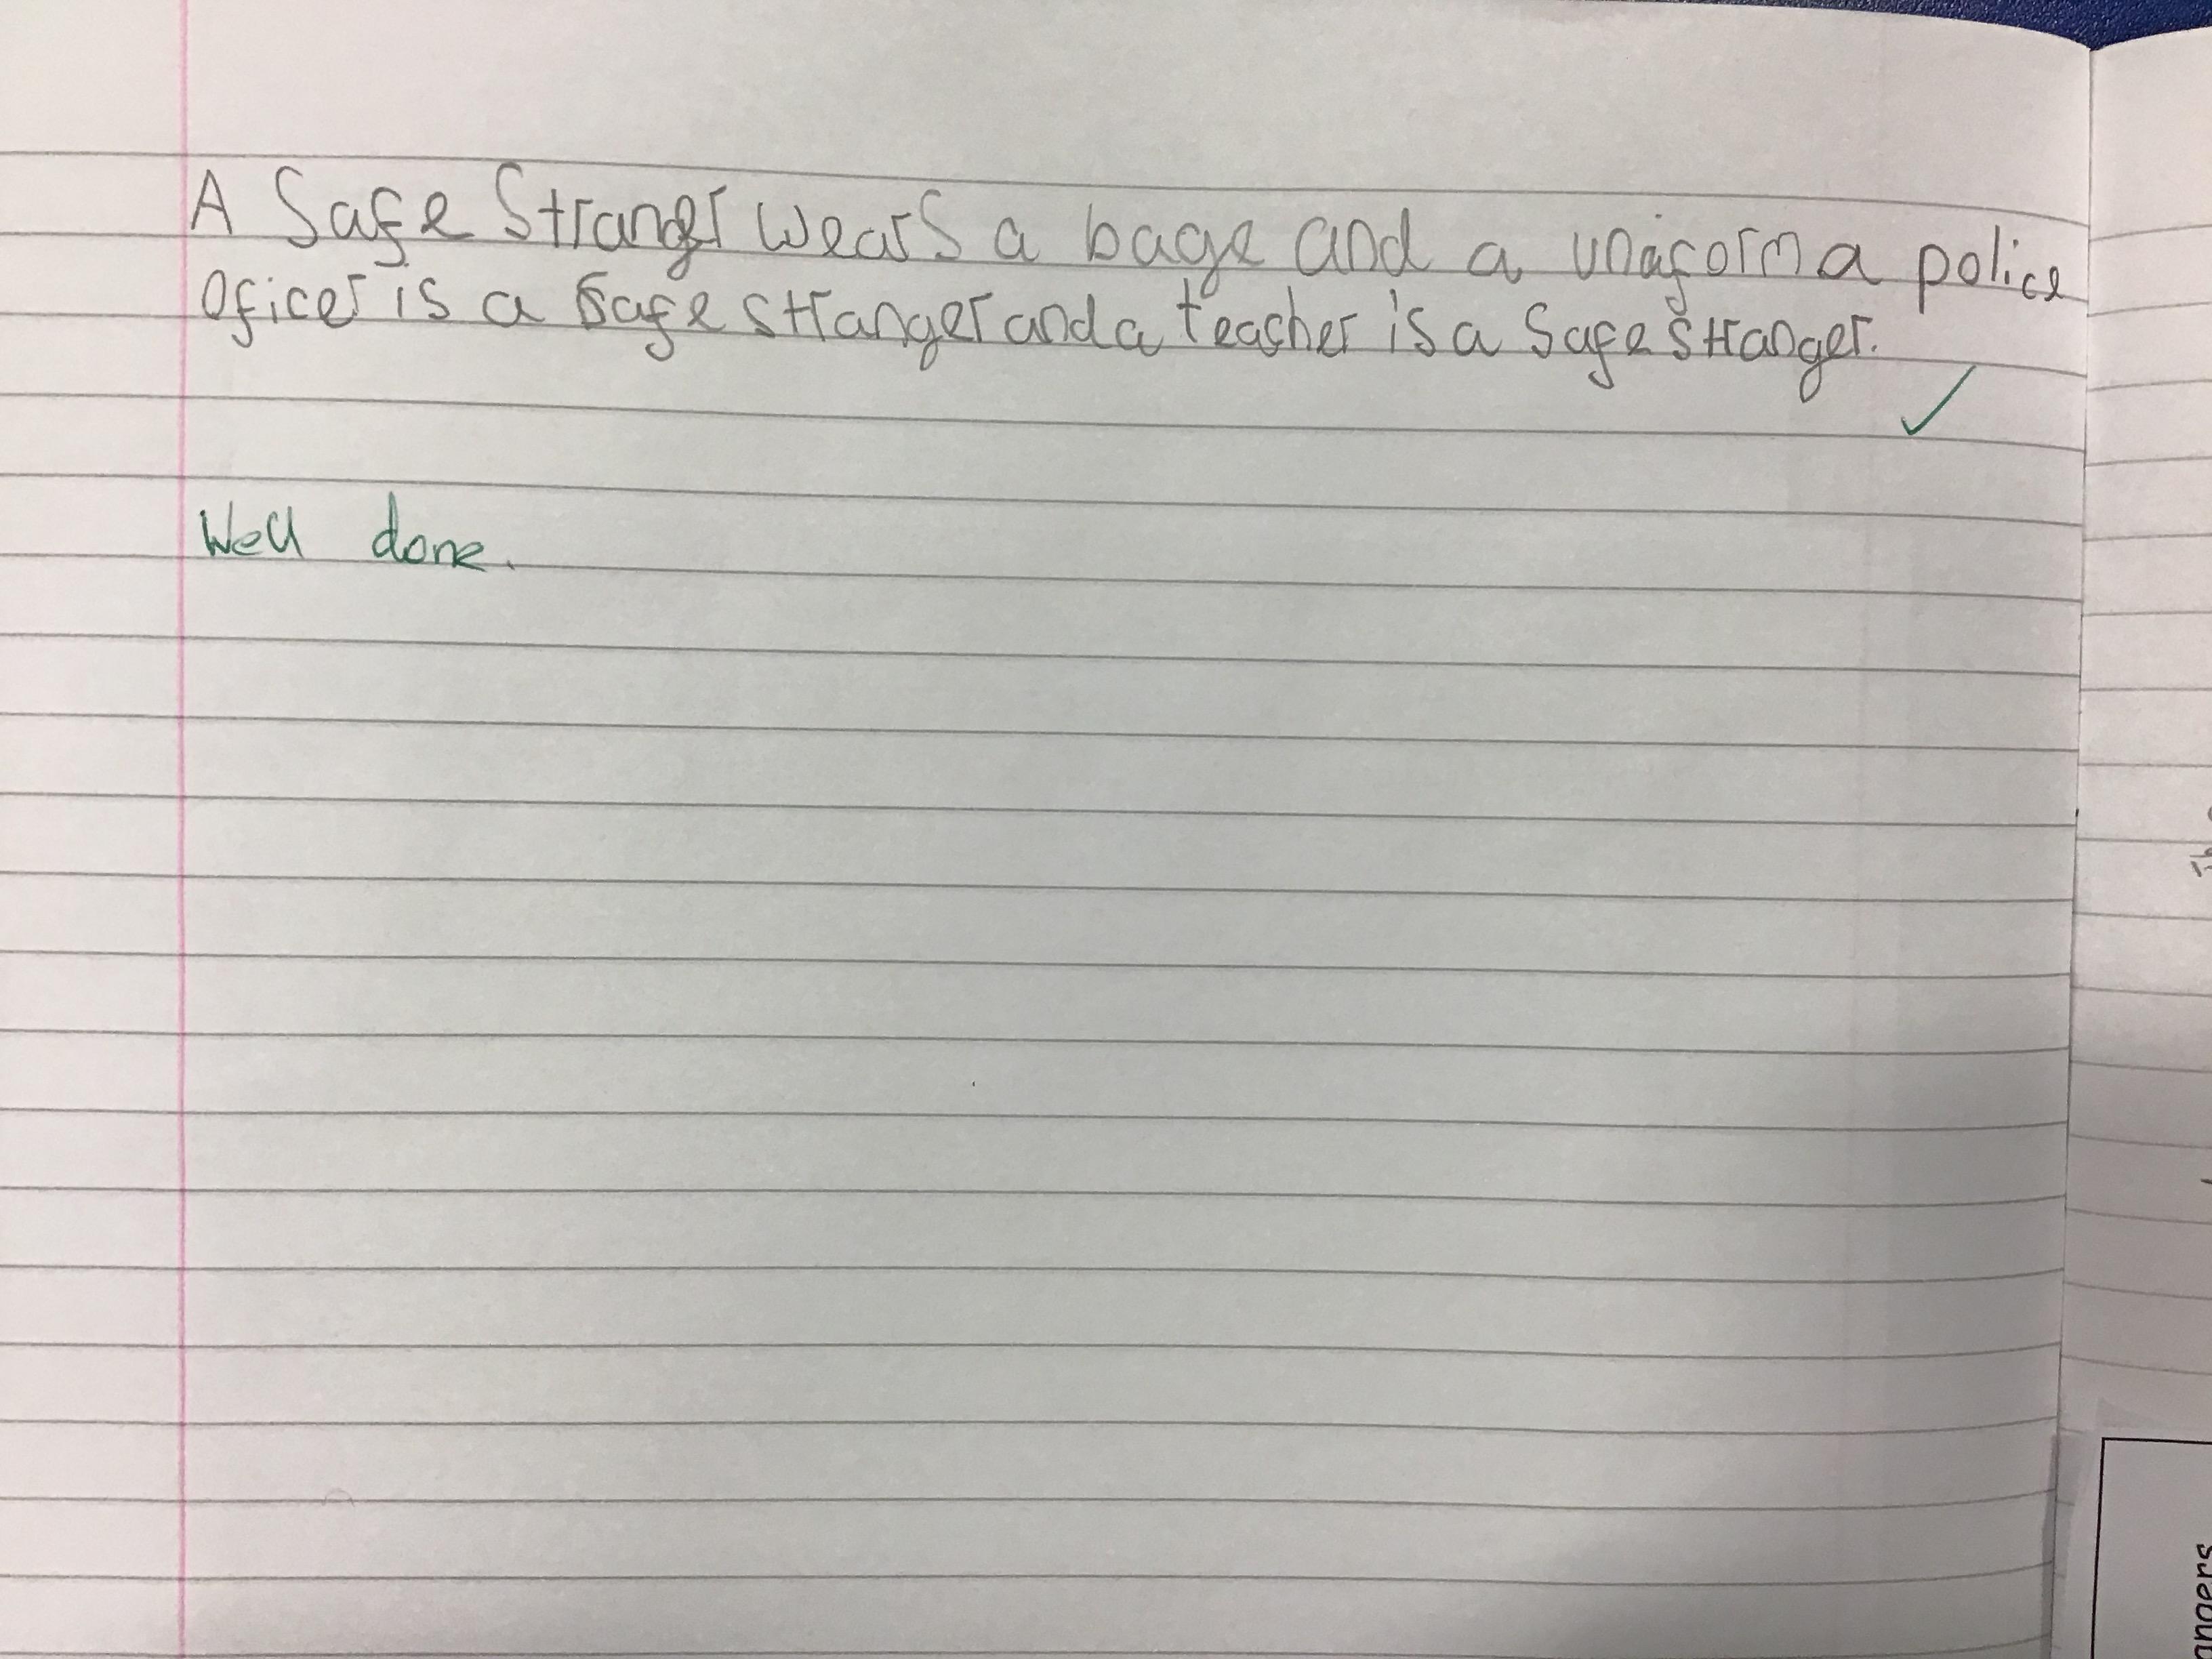 A Safe Stranger wears a bage and a unaform a police
oficer is a safe stranger and a teacher is a safe stranger.
✓
Well done.